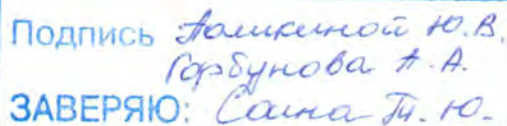 Подпись Поликиной Ю.В.
Горбунова А.А.
ЗАВЕРЯЮ: Саина Т.Ю.